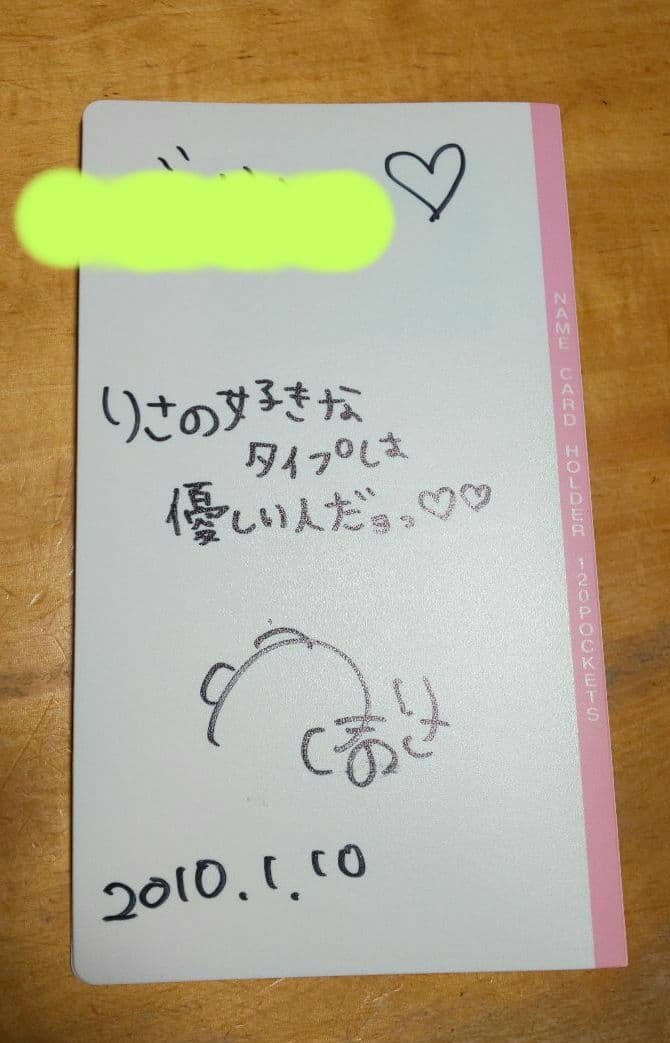 ♡
りさの好きな
タイプは
優しい人だョっ♡♡
2010.1.10
NAME CARD HOLDER 120POCKETS